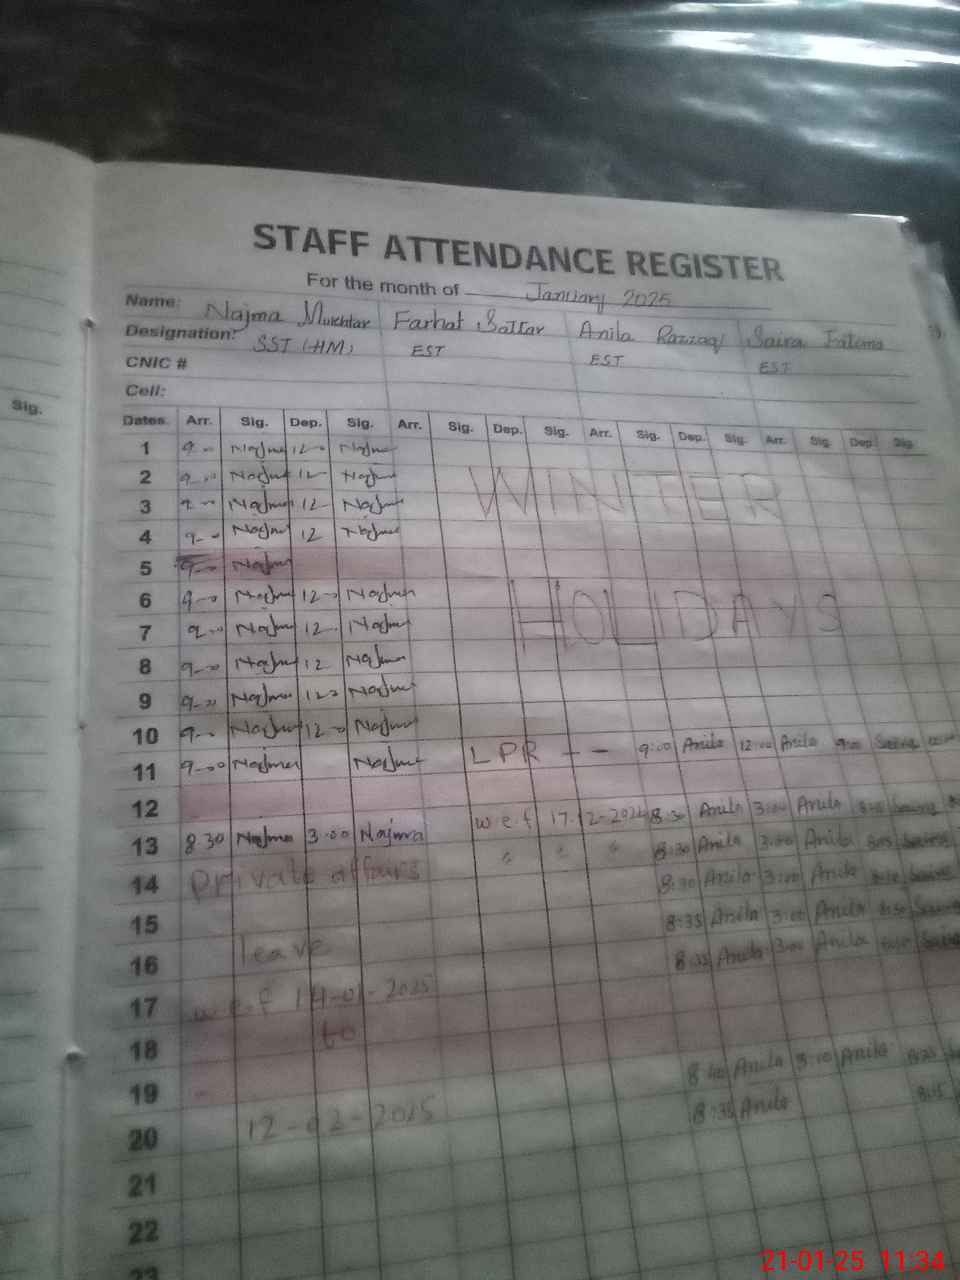 STAFF ATTENDANCE REGISTER
For the month of January 2025
Name: Najma Mukhtar Farhat Sattar Anila Razzaq Saira Fatima
Designation: SST (HM) EST EST EST
CNIC #
Cell:
Sig.
Dates Arr. Sig. Dep. Sig. Arr. Sig. Dep. Sig. Arr. Sig. Dep. Sig. Arr. Sig. Dep. Sig.
1 9-00 Najma 12-0 Najma
2 9-00 Najma 12- Najma WINTER
3 9-00 Najma 12- Najma
4 9-0 Najma 12 Najma
5 9-00 Najma
6 9-00 Najma 12-0 Najma HOLIDAYS
7 9-00 Najma 12- Najma
8 9-00 Najma 12 Najma
9 9-00 Najma 12-0 Najma
10 9-00 Najma 12-0 Najma
11 9-00 Najma Najma LPR - - 9:00 Anila 12:00 Anila 9:00 Saira
12
13 8 30 Najma 3-00 Najma w.e.f 17-12-2024 8:30 Anila 3:00 Anila Saira
14 private affairs 8:30 Anila 3:00 Anila Saira
15 8:30 Anila 3:00 Anila Saira
16 leave 8:35 Anila 3:00 Anila Saira
17 w.e.f 14-01-2025 8:35 Anila 3:00 Anila Saira
18 to
19
20 12-02-2025 8:40 Anila 3:00 Anila 8:25
21 8:35 Anila 8:15
22
23
21-01-25 11:34